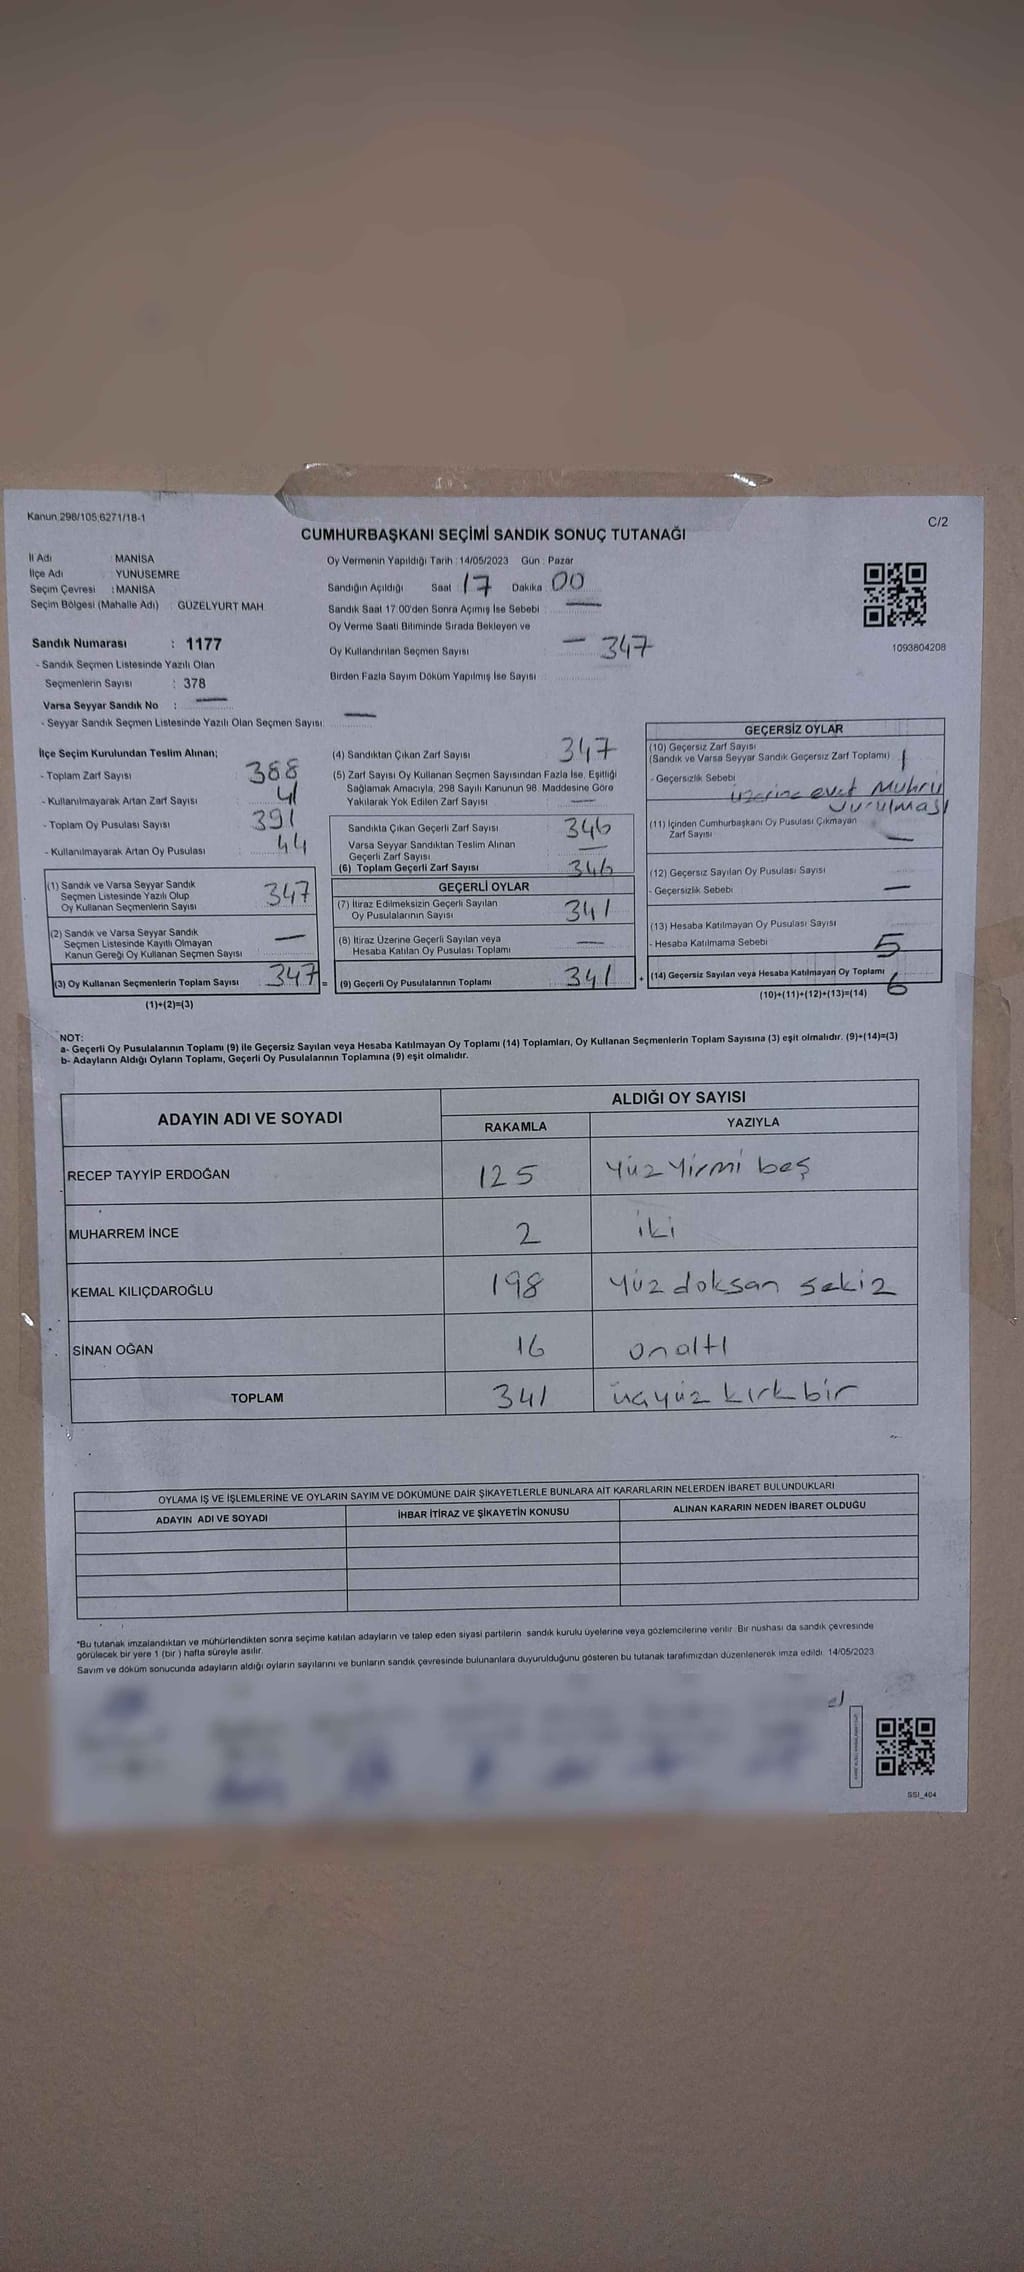 Kanun 298/105,6271/18-1
C/2
CUMHURBAŞKANI SEÇİMİ SANDIK SONUÇ TUTANAĞI
İl Adı : MANİSA
İlçe Adı : YUNUSEMRE
Seçim Çevresi : MANİSA
Seçim Bölgesi (Mahalle Adı) : GÜZELYURT MAH
Sandık Numarası : 1177
- Sandık Seçmen Listesinde Yazılı Olan
Seçmenlerin Sayısı : 378
Varsa Seyyar Sandık No : —
- Seyyar Sandık Seçmen Listesinde Yazılı Olan Seçmen Sayısı —
Oy Vermenin Yapıldığı Tarih : 14/05/2023 Gün : Pazar
Sandığın Açıldığı Saat 17 Dakika 00
Sandık Saat 17 00'den Sonra Açımış İse Sebebi : —
Oy Verme Saati Bitiminde Sırada Bekleyen ve
Oy Kullandırılan Seçmen Sayısı — 347
Birden Fazla Sayım Döküm Yapılmış İse Sayısı
1093804208
İlçe Seçim Kurulundan Teslim Alınan;
- Toplam Zarf Sayısı 388
- Kullanılmayarak Artan Zarf Sayısı 41
- Toplam Oy Pusulası Sayısı 391
- Kullanılmayarak Artan Oy Pusulası 44
(1) Sandık ve Varsa Seyyar Sandık
Seçmen Listesinde Yazılı Olup
Oy Kullanan Seçmenlerin Sayısı 347
(2) Sandık ve Varsa Seyyar Sandık
Seçmen Listesinde Kayıtlı Olmayan
Kanun Gereği Oy Kullanan Seçmen Sayısı —
(3) Oy Kullanan Seçmenlerin Toplam Sayısı 347 =
(1)+(2)=(3)
(4) Sandıktan Çıkan Zarf Sayısı 347
(5) Zarf Sayısı Oy Kullanan Seçmen Sayısından Fazla İse, Eşitliği
Sağlamak Amacıyla, 298 Sayılı Kanunun 98. Maddesine Göre
Yakılarak Yok Edilen Zarf Sayısı —
Sandıkta Çıkan Geçerli Zarf Sayısı 346
Varsa Seyyar Sandıktan Teslim Alınan
Geçerli Zarf Sayısı —
(6) Toplam Geçerli Zarf Sayısı 346
GEÇERLİ OYLAR
(7) İtiraz Edilmeksizin Geçerli Sayılan
Oy Pusulalarının Sayısı 341
(8) İtiraz Üzerine Geçerli Sayılan veya
Hesaba Katılan Oy Pusulası Toplamı —
(9) Geçerli Oy Pusulalarının Toplamı 341 +
GEÇERSİZ OYLAR
(10) Geçersiz Zarf Sayısı
(Sandık ve Varsa Seyyar Sandık Geçersiz Zarf Toplamı) 1
- Geçersizlik Sebebi
üzerine evet Mührü
Vurulması
(11) İçinden Cumhurbaşkanı Oy Pusulası Çıkmayan
Zarf Sayısı —
(12) Geçersiz Sayılan Oy Pusulası Sayısı
- Geçersizlik Sebebi —
(13) Hesaba Katılmayan Oy Pusulası Sayısı
- Hesaba Katılmama Sebebi 5
(14) Geçersiz Sayılan veya Hesaba Katılmayan Oy Toplamı 6
(10)+(11)+(12)+(13)=(14)
NOT:
a- Geçerli Oy Pusulalarının Toplamı (9) ile Geçersiz Sayılan veya Hesaba Katılmayan Oy Toplamı (14) Toplamları, Oy Kullanan Seçmenlerin Toplam Sayısına (3) eşit olmalıdır. (9)+(14)=(3)
b- Adayların Aldığı Oyların Toplamı, Geçerli Oy Pusulalarının Toplamına (9) eşit olmalıdır.
ADAYIN ADI VE SOYADI
ALDIĞI OY SAYISI
RAKAMLA YAZIYLA
RECEP TAYYİP ERDOĞAN 125 yüz yirmi beş
MUHARREM İNCE 2 iki
KEMAL KILIÇDAROĞLU 198 yüz doksan sekiz
SİNAN OĞAN 16 onaltı
TOPLAM 341 üçyüz kırkbir
OYLAMA İŞ VE İŞLEMLERİNE VE OYLARIN SAYIM VE DÖKÜMÜNE DAİR ŞİKAYETLERLE BUNLARA AİT KARARLARIN NELERDEN İBARET BULUNDUKLARI
ADAYIN ADI VE SOYADI
İHBAR İTİRAZ VE ŞİKAYETİN KONUSU
ALINAN KARARIN NEDEN İBARET OLDUĞU
*Bu tutanak imzalandıktan ve mühürlendikten sonra seçime katılan adayların ve talep eden siyasi partilerin sandık kurulu üyelerine veya gözlemcilerine verilir. Bir nüshası da sandık çevresinde
görülecek bir yere 1 (bir ) hafta süreyle asılır.
Sayım ve döküm sonucunda adayların aldığı oyların sayılarını ve bunların sandık çevresinde bulunanlara duyurulduğunu gösteren bu tutanak tarafımızdan düzenlenerek imza edildi. 14/05/2023
SSI_404